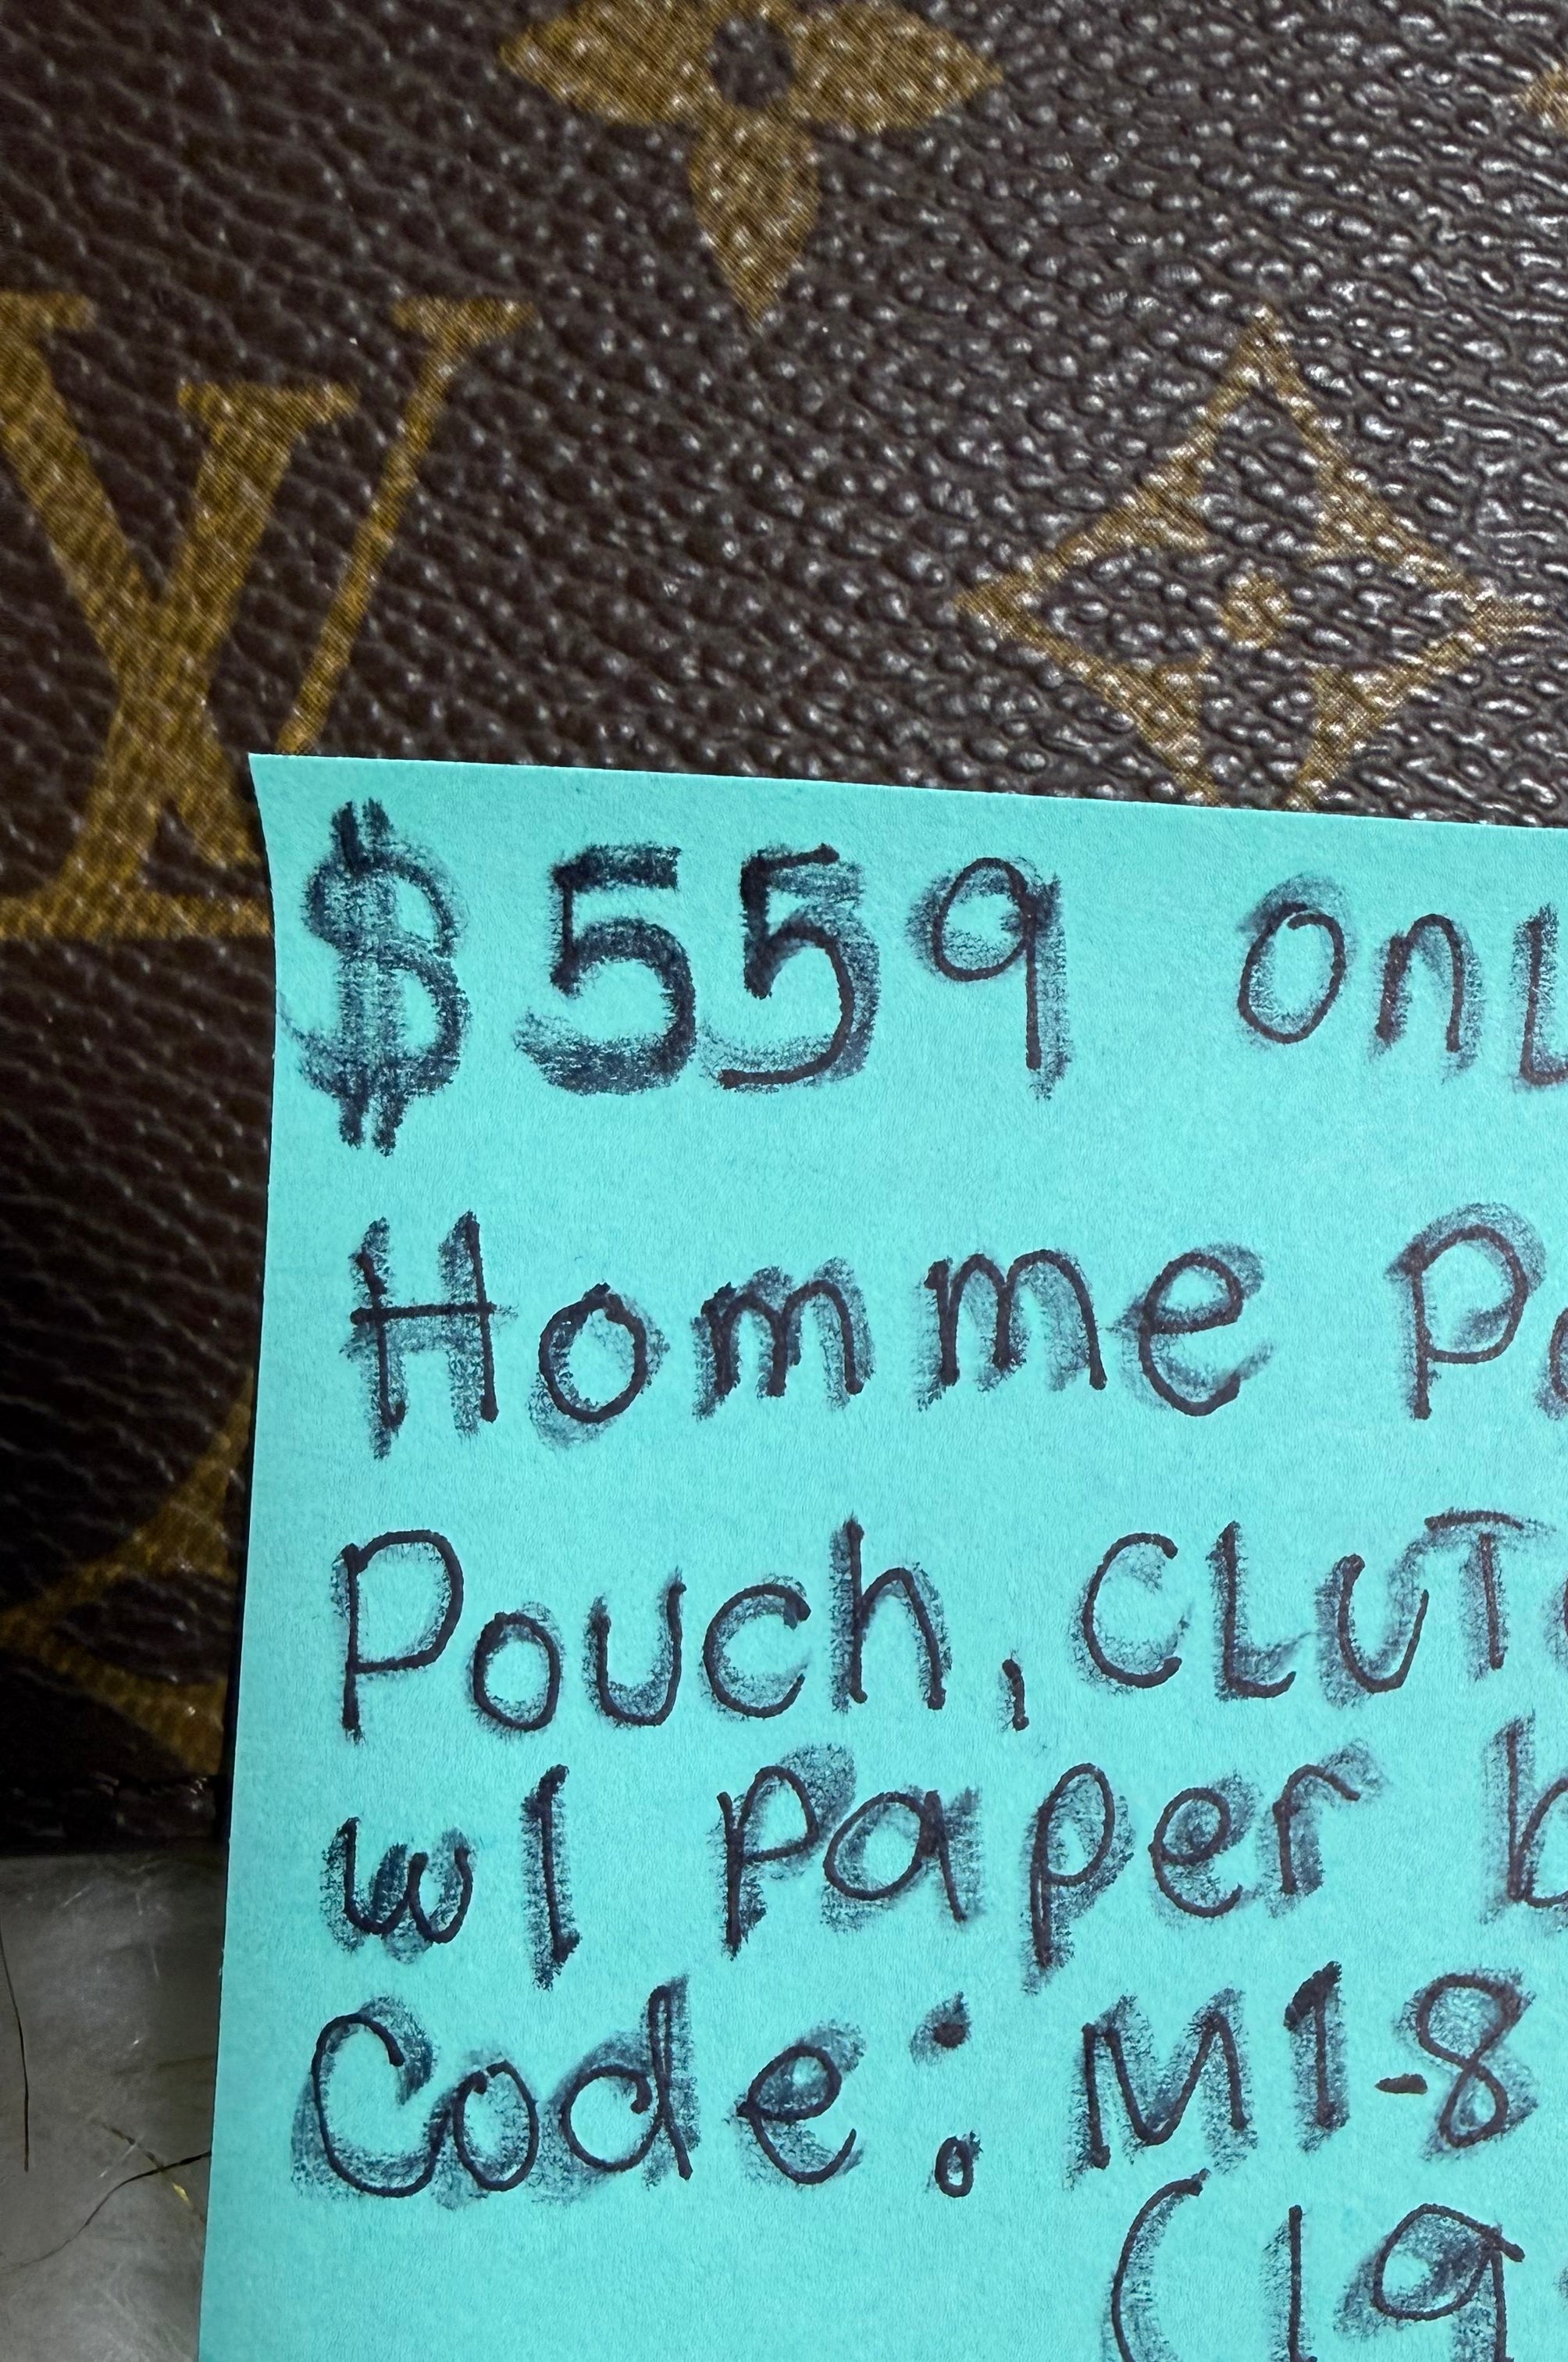 LV
$559 onl
Homme Po
Pouch, CLUTC
w/ Paper b
Code: M1-8
(19